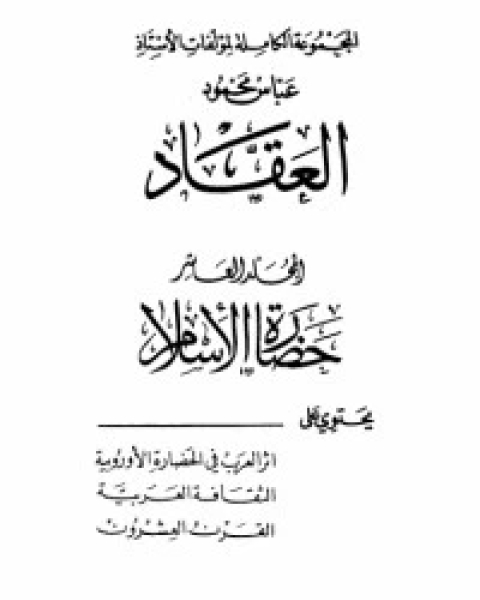 المجموعة الكاملة لمؤلفات الأستاذ
عباس محمود
العقاد
المجلد العاشر
حضارة الإسلام
يحتوي على
اثر العرب في الحضارة الأوروبية
الثقافة العربية
القرن العشرون